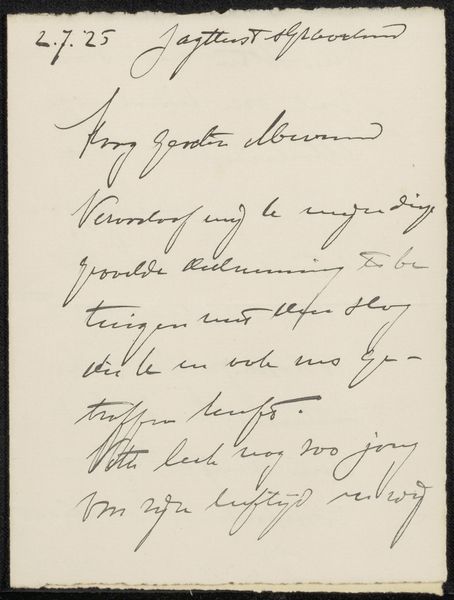 2.7.'25 Jagtlust 's Graveland
Hoog geachte Mevrouw
Veroorloof mij U mijn diep
gevoelde deelneming te be
tuigen met den slag
die U en ook ons ge-
troffen heeft.
leek nog zoo jong
om zijn leeftijd en wij